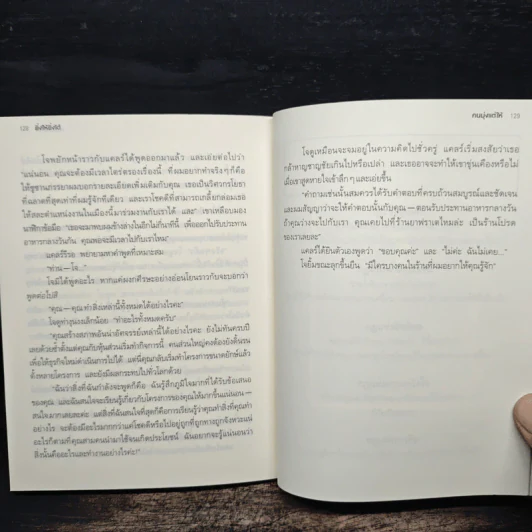 128 ยิ่งให้ยิ่งได้
โจพยักหน้าราวกับแคลร์ได้พูดออกมาแล้ว และเอ่ยต่อไปว่า
"แน่นอน คุณจะต้องมีเวลาไตร่ตรองเรื่องนี้ สิ่งที่ผมอยากทำจริงๆ ก็คือ
ให้ซูซานภรรยาผมบอกรายละเอียดเพิ่มเติมกับคุณ เธอเป็นวิศวกรโยธา
ที่ฉลาดที่สุดเท่าที่ผมรู้จักทีเดียว และเราโชคดีที่สามารถเกลี้ยกล่อมเธอ
ให้สละตำแหน่งงานในเมืองนี้มาร่วมงานกับเราได้ และ" เขาเหลือบมอง
นาฬิกาข้อมือ "เธอจะมาพบผมข้างล่างในอีกไม่กี่นาทีนี้ เพื่อออกไปรับประทาน
อาหารกลางวันกัน คุณพอจะมีเวลาไปกับเราไหม"
แคลร์รีรอ พยายามหาคำพูดที่เหมาะสม
"ท่าน—โจ..."
โจมิได้พูดอะไร หากแค่ผงกศีรษะอย่างอ่อนโยนราวกับจะบอกว่า
พูดต่อไปสิ
"คุณ—คุณทำสิ่งเหล่านี้ทั้งหมดได้อย่างไรคะ"
โจดูท่างุนงงเล็กน้อย "ทำอะไรทั้งหมดครับ"
"คุณสร้างสภาพอันน่าอัศจรรย์เหล่านี้ได้อย่างไรคะ ยังไม่ทันครบปี
เลยด้วยซ้ำตั้งแต่คุณกับหุ้นส่วนเริ่มทำกิจการนี้ คนส่วนใหญ่คงต้องยังดิ้นรน
เพื่อให้ธุรกิจใหม่ดำเนินการไปได้ แต่นี่คุณกลับเริ่มทำโครงการขนาดยักษ์แล้ว
ตั้งหลายโครงการ และยังมีผลกระทบไปทั่วโลกด้วย
"ฉันว่าสิ่งที่ฉันกำลังจะพูดก็คือ ฉันรู้สึกภูมิใจมากที่ได้รับข้อเสนอ
ของคุณ และฉันสนใจจะเรียนรู้เกี่ยวกับโครงการของคุณให้มากขึ้นแน่นอน—
สนใจมากเลยละค่ะ แต่สิ่งที่ฉันสนใจที่สุดก็คือการเรียนรู้ว่าคุณทำสิ่งที่คุณทำ
อย่างไร จะต้องมีอะไรมากกว่าแค่โชคดีหรือไปอยู่ถูกที่ถูกทางถูกจังหวะแน่
อะไรก็ตามที่คุณสามคนนำมาใช้จนเกิดประโยชน์ ฉันอยากจะรู้แน่นอนว่า
สิ่งนั้นคืออะไรและทำงานอย่างไรค่ะ"
คนมุ่งแต่ให้ 129
โจดูเหมือนจะจมอยู่ในความคิดไปชั่วครู่ แคลร์เริ่มสงสัยว่าเธอ
กล้าหาญชาญชัยเกินไปหรือเปล่า และเธออาจจะทำให้เขาขุ่นเคืองหรือไม่
เมื่อเขาสูดหายใจเข้าลึกๆ และเอ่ยขึ้น
"คำถามเช่นนั้นสมควรได้รับคำตอบที่ครบถ้วนสมบูรณ์และชัดเจน
และผมสัญญาว่าจะให้คำตอบนั้นกับคุณ—ตอนรับประทานอาหารกลางวัน
ถ้าคุณว่างจะไปกับเรา คุณเคยไปที่ร้านยาฟราเตไหมล่ะ เป็นร้านโปรด
ของเราเลยล่ะ"
แคลร์ได้ยินตัวเองพูดว่า "ขอบคุณค่ะ" และ "ไม่ค่ะ ฉันไม่เคย..."
โจยิ้มขณะลุกขึ้นยืน "มีใครบางคนในร้านที่ผมอยากให้คุณรู้จัก"